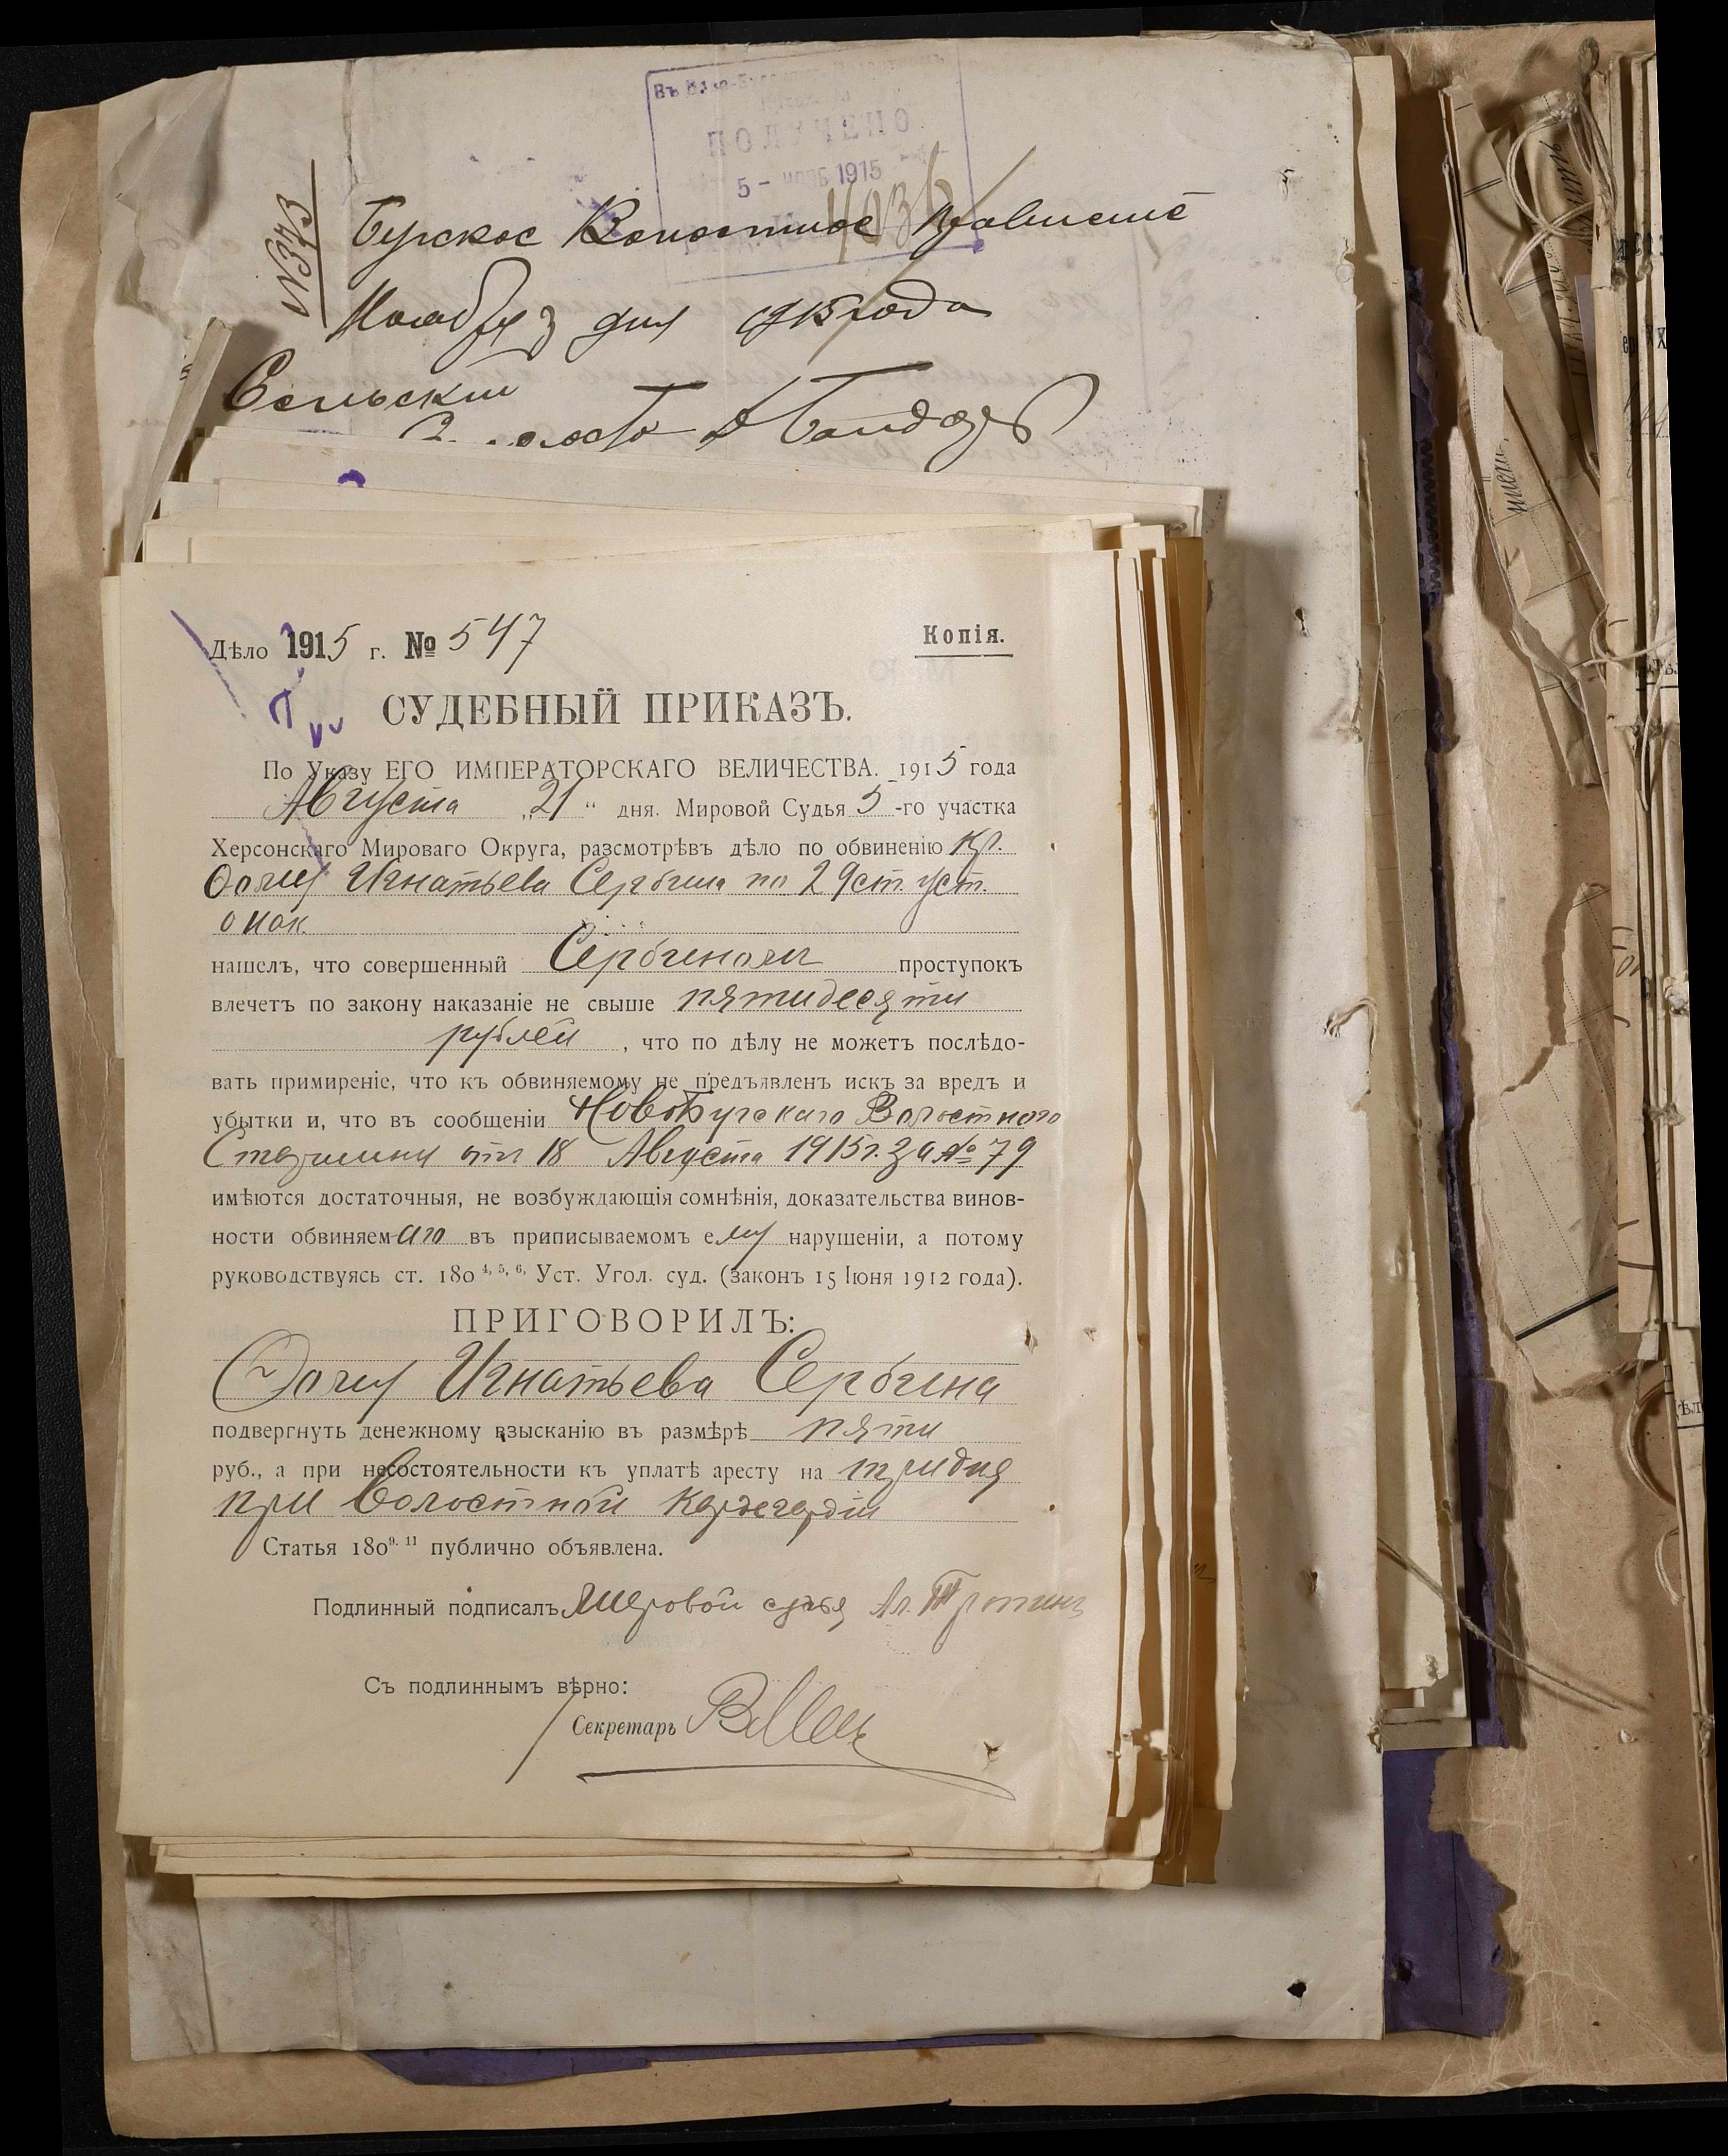 Въ Ново-Бугское Волостное
ПОЛУЧЕНО
5 - НОЯБ 1915
4036
№373
Бугское Волостное Правленіе
Ноября 3 дня 1915 года
Сельскій
Дѣло 1915 г. № 547
Копія.
СУДЕБНЫЙ ПРИКАЗЪ.
По Указу ЕГО ИМПЕРАТОРСКАГО ВЕЛИЧЕСТВА. 1915 года
Августа „21“ дня. Мировой Судья 5-го участка
Херсонскаго Мироваго Округа, разсмотрѣвъ дѣло по обвиненію кр.
Фомы Игнатьева Сербина по 29 ст. уст.
о нак.
нашелъ, что совершенный Сербиномъ проступокъ
влечетъ по закону наказаніе не свыше пятидесяти
рублей, что по дѣлу не можетъ послѣдо-
вать примиреніе, что къ обвиняемому не предъявленъ искъ за вредъ и
убытки и, что въ сообщеніи НовоБугскаго Волостного
Старшины отъ 18 Августа 1915 г. за № 79
имѣются достаточныя, не возбуждающія сомнѣнія, доказательства винов-
ности обвиняемаго въ приписываемомъ ему нарушеніи, а потому
руководствуясь ст. 180 4, 5, 6, Уст. Угол. суд. (законъ 15 Іюня 1912 года).
ПРИГОВОРИЛЪ:
Фому Игнатьева Сербина
подвергнуть денежному взысканію въ размѣрѣ пяти
руб., а при несостоятельности къ уплатѣ аресту на три дня
при Волостной Кордегардіи
Статья 180 9. 11 публично объявлена.
Подлинный подписалъ Мировой судья Ал.
Съ подлиннымъ вѣрно:
Секретарь